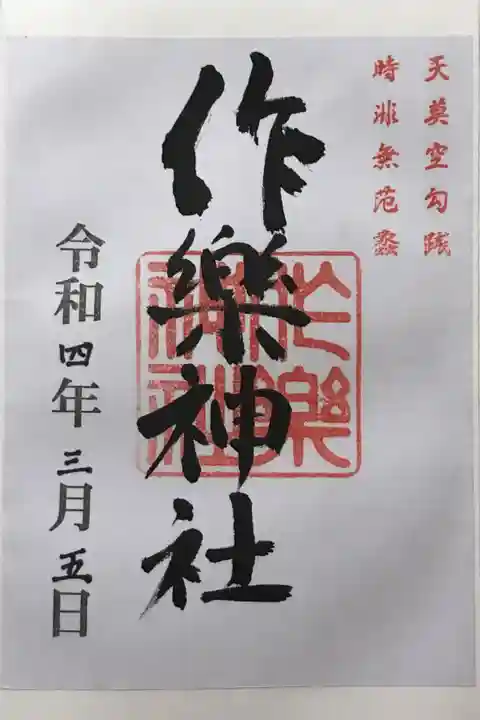 天莫空勾践
時非無范蠡
作樂神社
作樂神社
令和四年三月五日